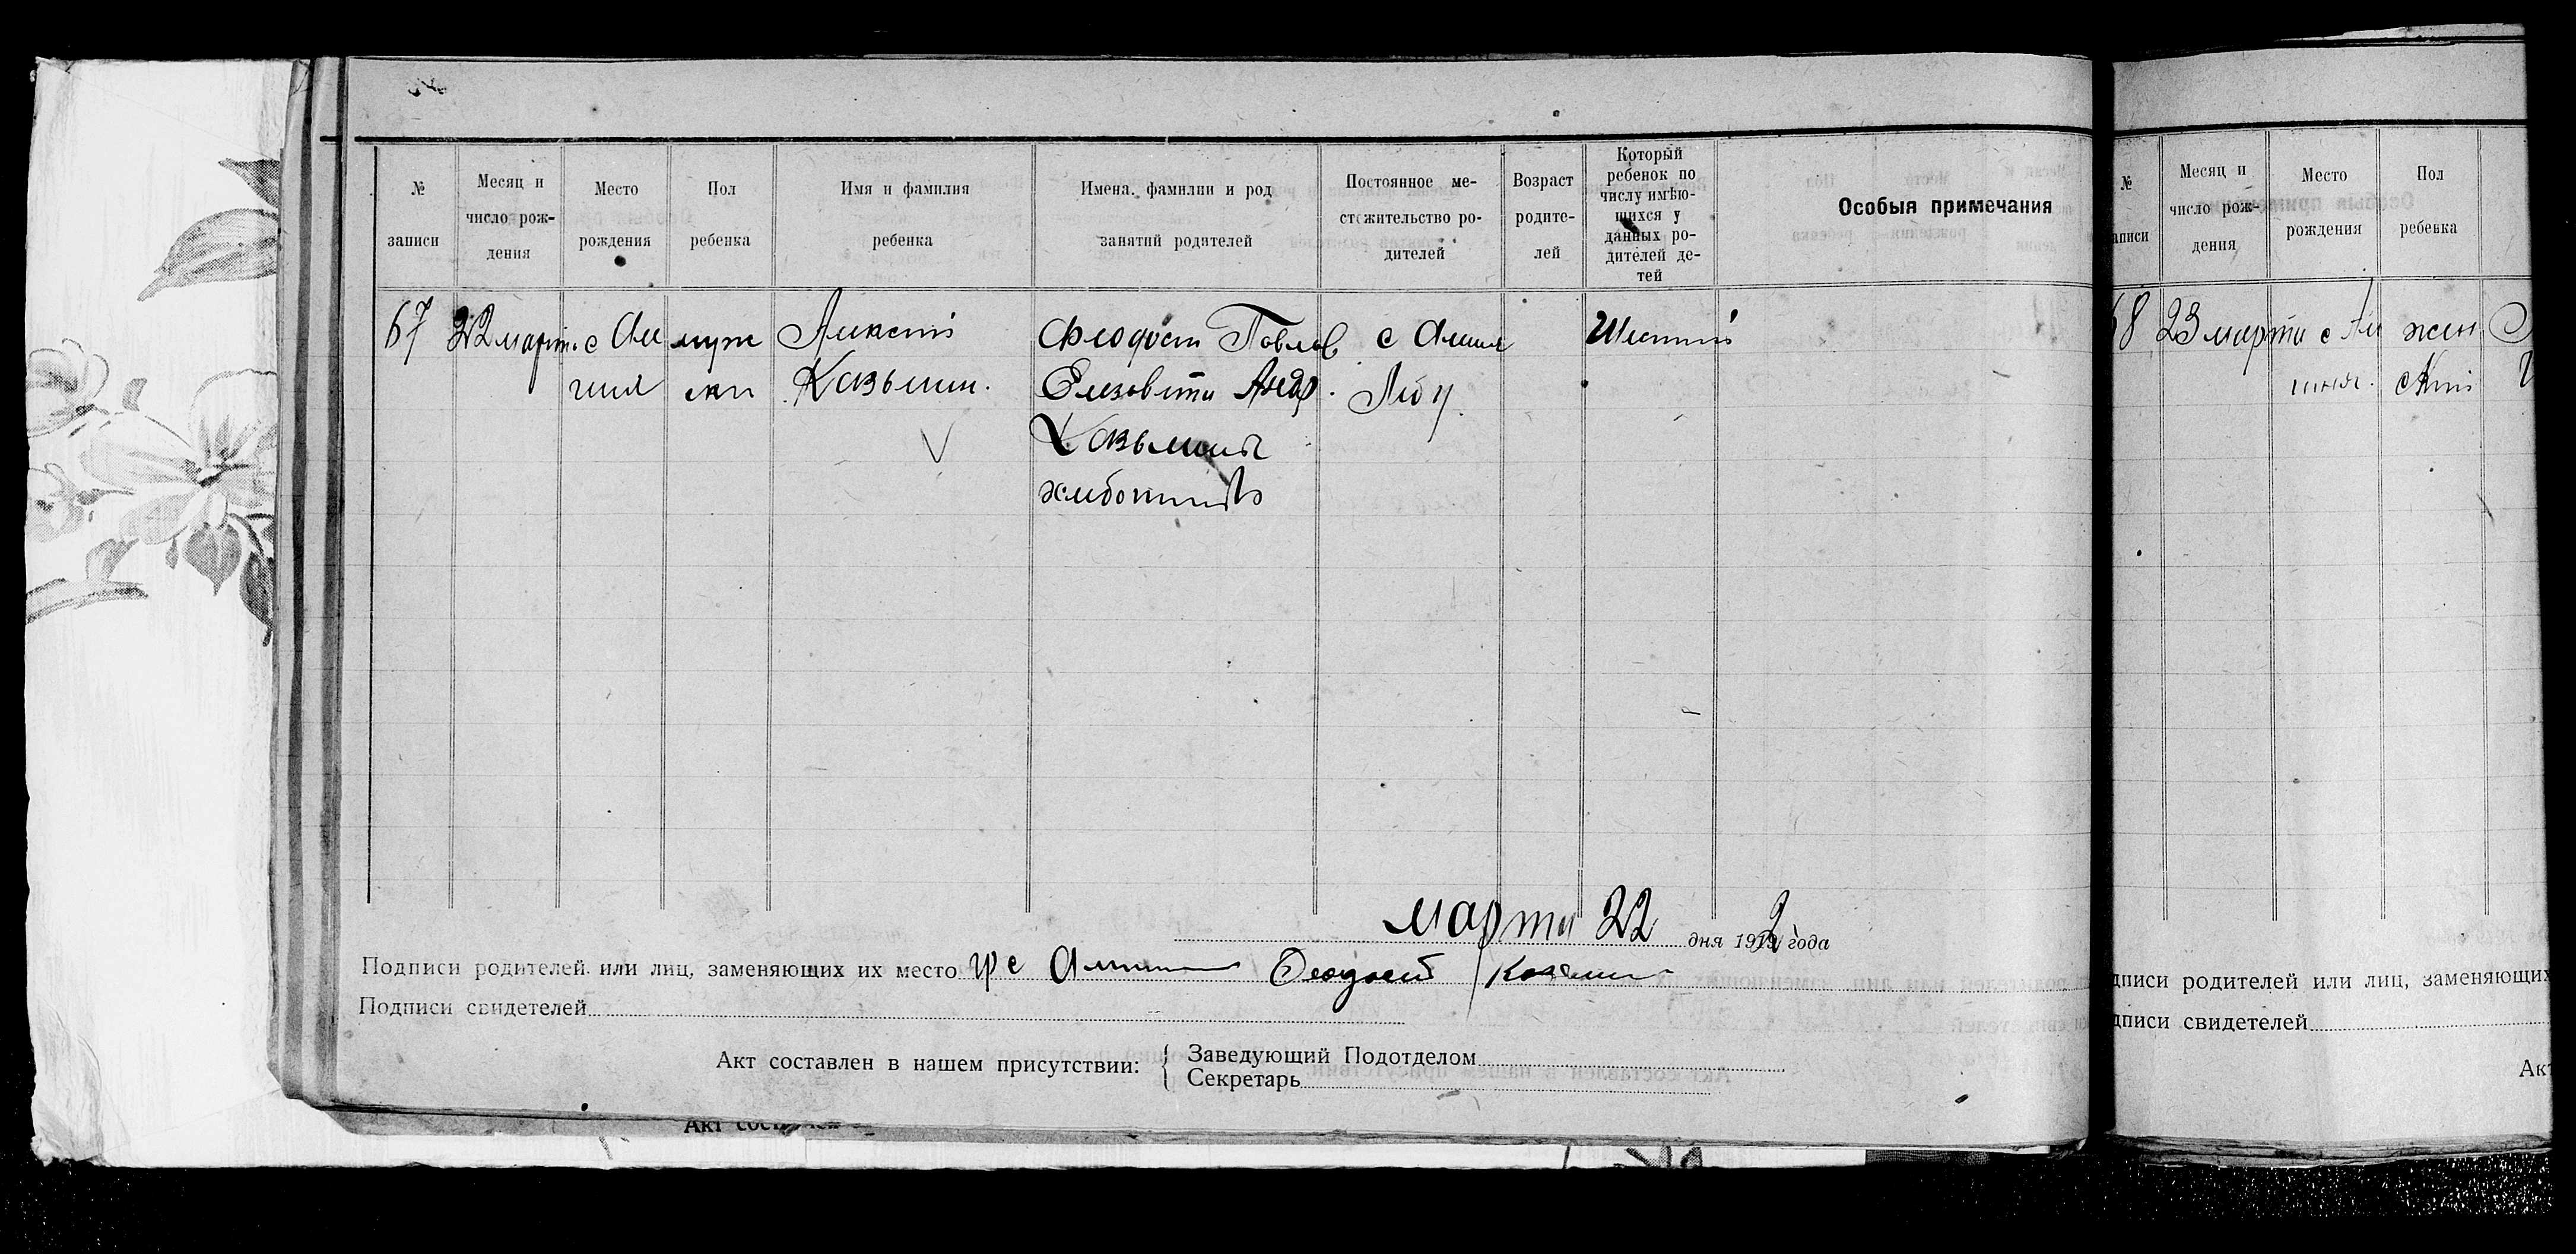 № записи
Месяц и число рождения
Место рождения
Пол ребенка
Имя и фамилия ребенка
Имена, фамилии и род занятий родителей
Постоянное местожительство родителей
Возраст родителей
Который ребенок по числу имѣющихся у данных родителей детей
Особыя примечания
67 22 марта с мужс Алексей Феодосий Павлов с Шестый
кий Казьмин. Елизовета Андр.
Казьмины
хлебопашцы
марта 22 дня 1922 года
Подписи родителей или лиц, заменяющих их место гр с Феодосий Казьмин
Подписи свидетелей
Акт составлен в нашем присутствии: { Заведующий Подотделом
Секретарь
№ записи
Месяц и число рождения
Место рождения
Пол ребенка
68 23 марта с жен
ский
дписи родителей или лиц, заменяющих
дписи свидетелей
Акт